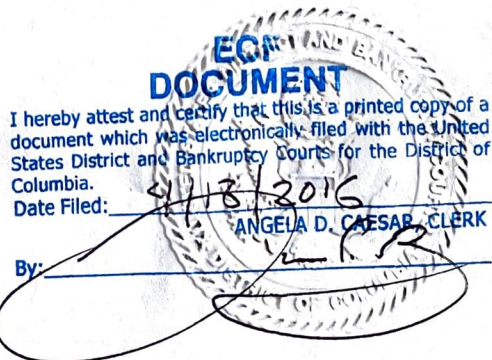 ECF
DOCUMENT
I hereby attest and certify that this is a printed copy of a
document which was electronically filed with the United
States District and Bankruptcy Courts for the District of
Columbia.
Date Filed: 4/18/2016
ANGELA D. CAESAR, CLERK
By:
DISTRICT OF COLUMBIA